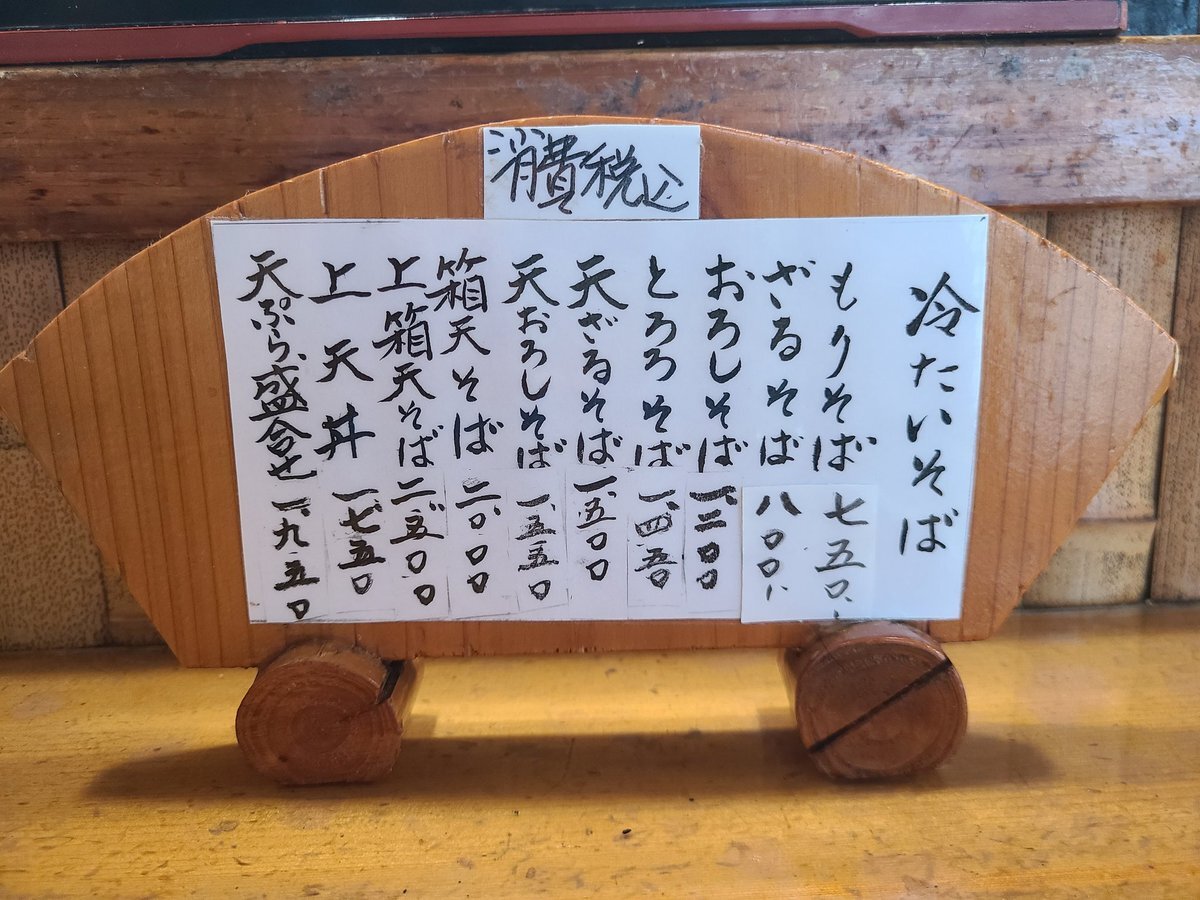 消費税込
冷たいそば
もりそば 七五〇、
ざるそば 八〇〇、
おろしそば 一、二〇〇
とろろそば 一、四五〇
天ざるそば 一、五〇〇
天おろしそば 一、五五〇
箱天そば 二、〇〇〇
上箱天そば 二、五〇〇
上天丼 一、七五〇
天ぷら盛合せ 一、九五〇